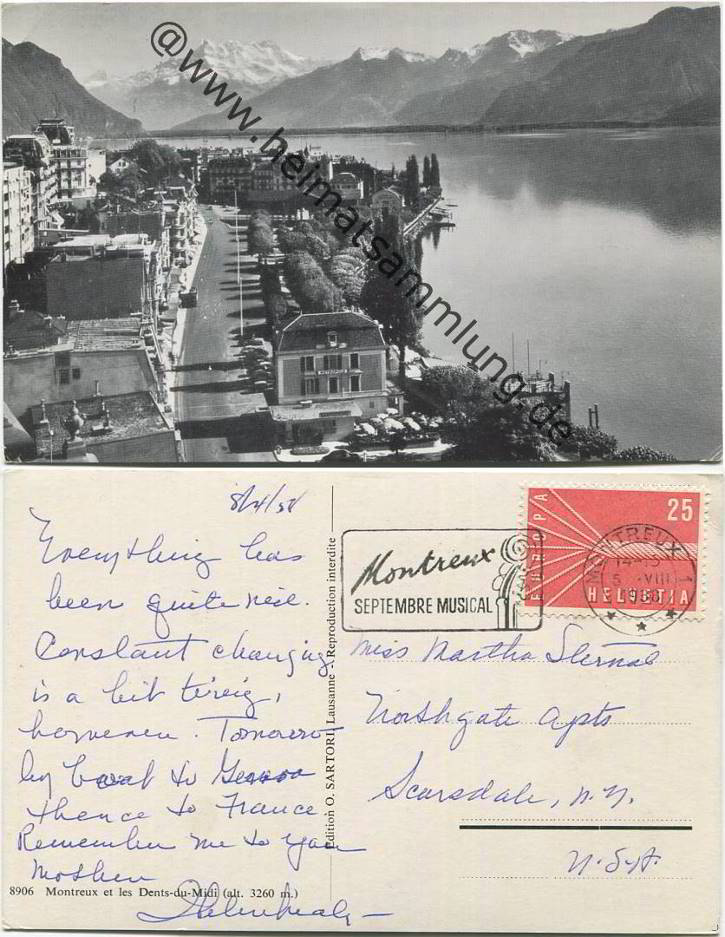 @www.heimatsammlung.de
METROPOLE
8/4/58
Everything has
been quite nice.
Constant changing
is a bit tiring,
however. Tomorrow
by boat to Geneva
thence to France.
Remember me to your
mother
8906 Montreux et les Dents-du-Midi (alt. 3260 m.)
Edition O. SARTORI, Lausanne - Reproduction interdite
Montreux
SEPTEMBRE MUSICAL
EUROPA
25
HELVETIA
MONTREUX 1
14-15
5. VIII
1958
Miss Martha
Northgate Apts
Scarsdale, N.Y.
U.S.A.